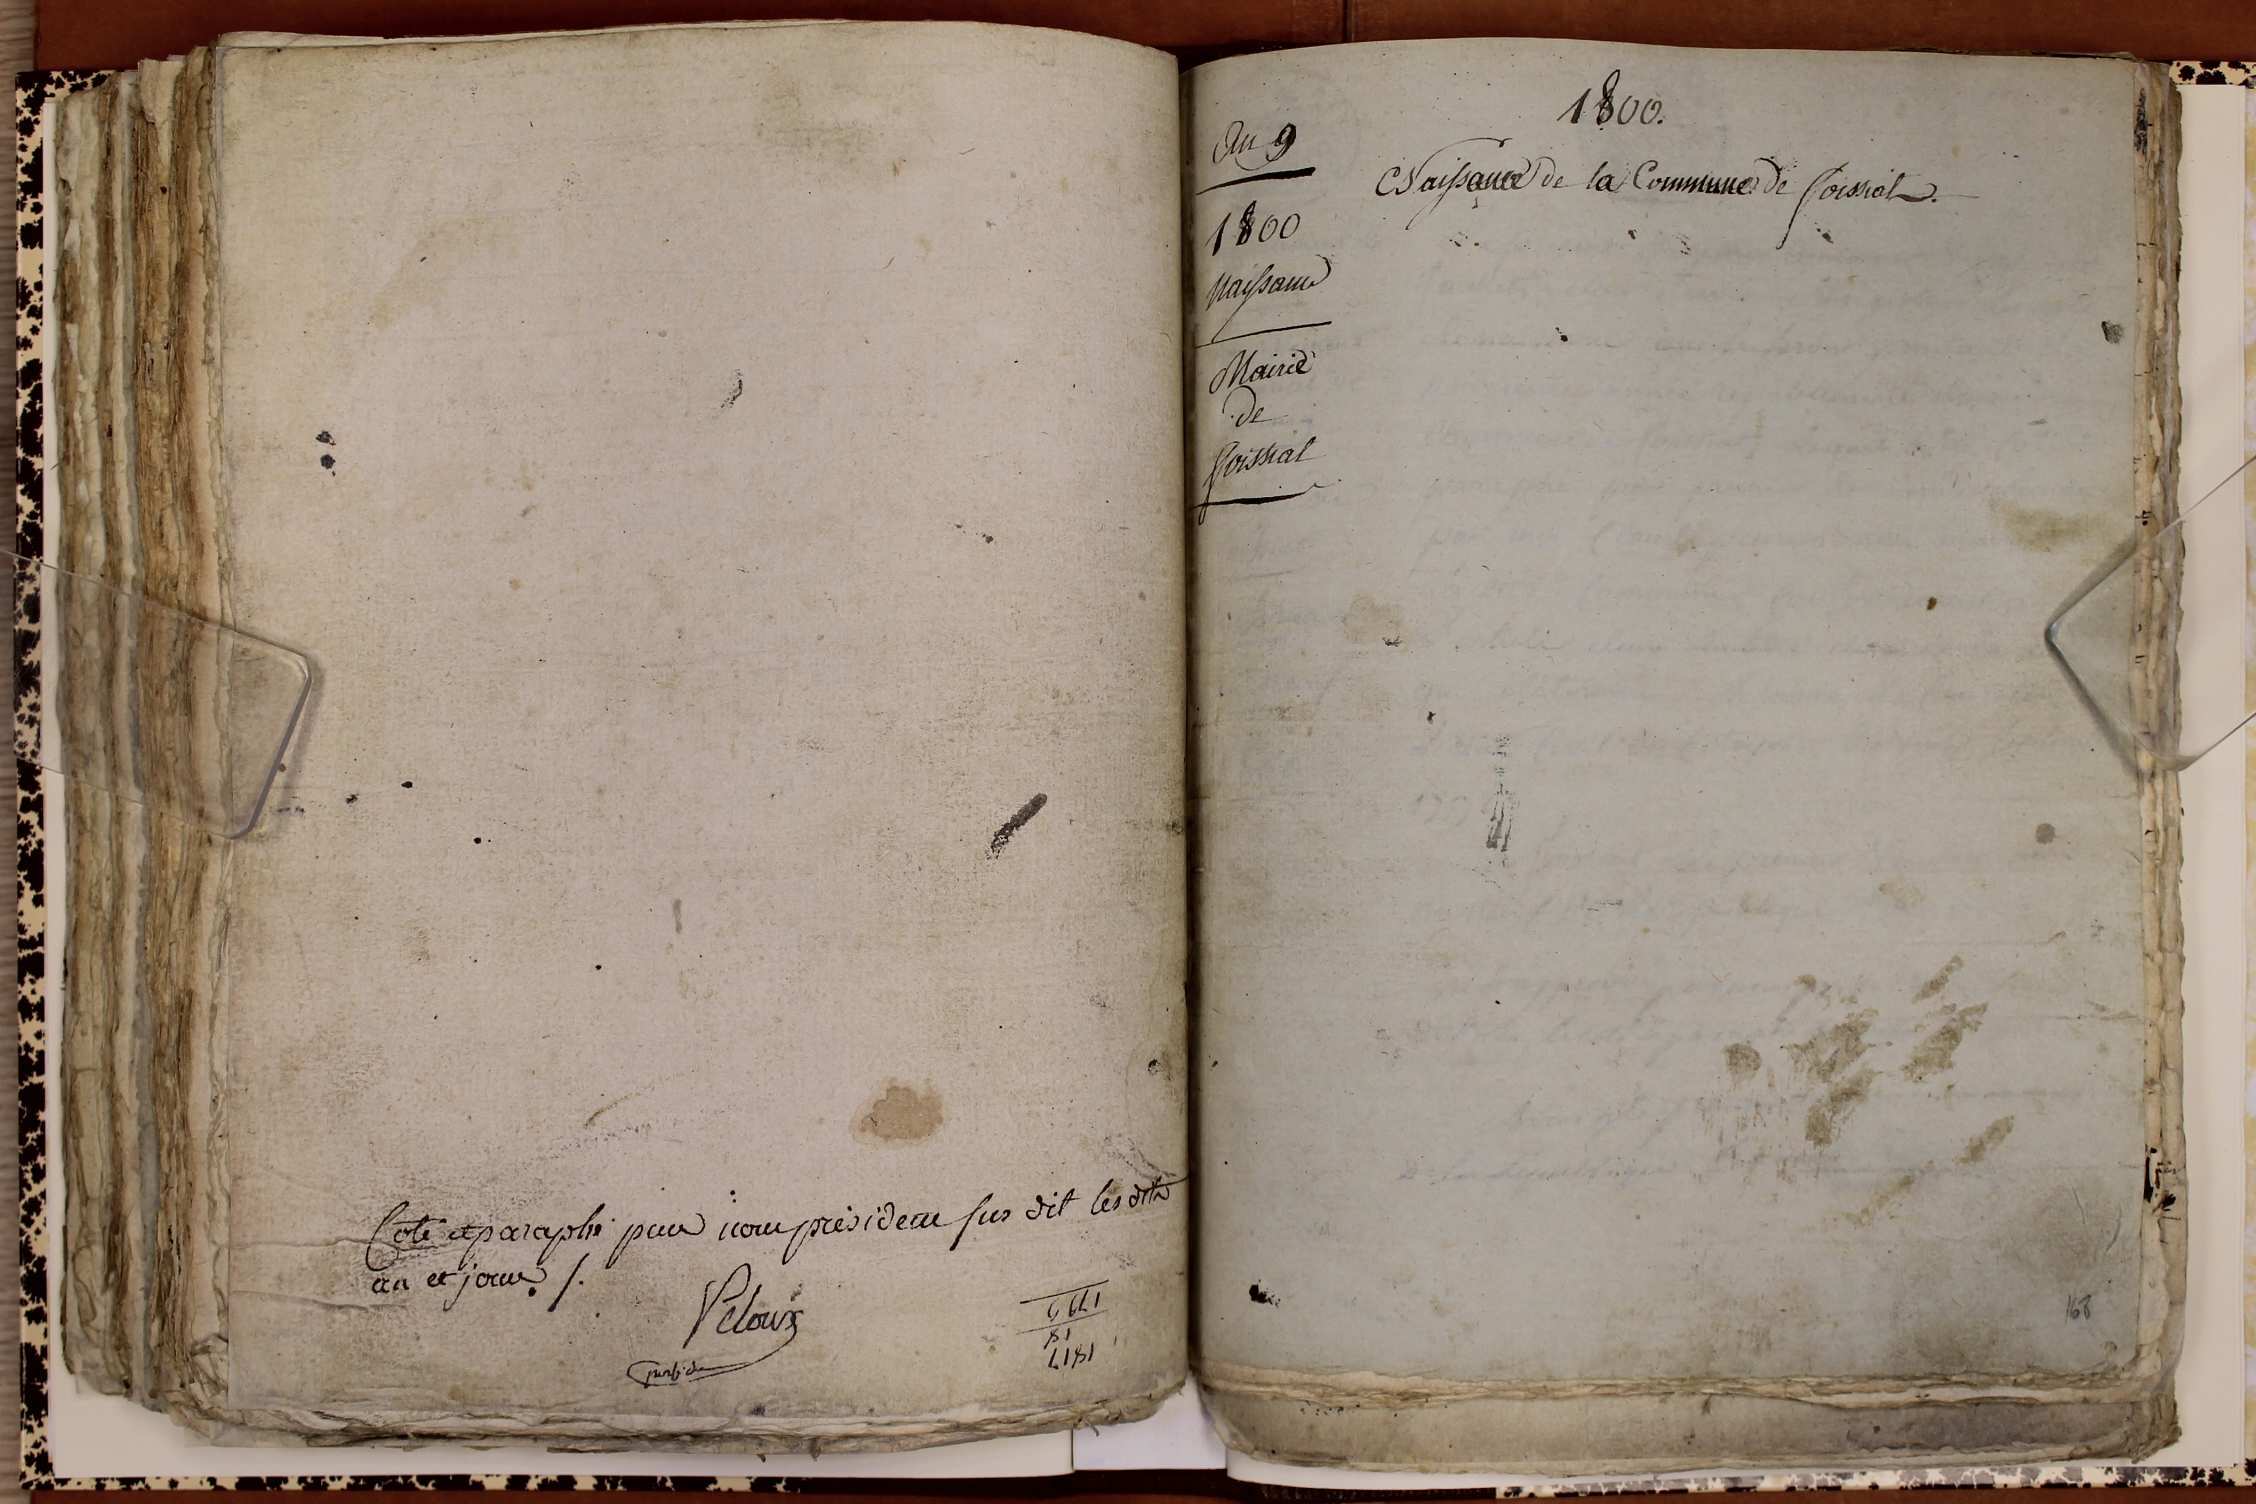 Coté et paraphé par nous président sus dit les dits
an et jour /.
Veloux
président
1799
18
1817
1800.
Naissance de la Commune de Poissiat.
An 9
1800
Naissance
Mairie
de
Poissiat
168